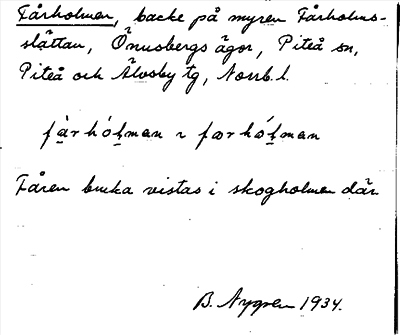 Fårholmen, backe på myren Fårholms-
slåttan, Önusbergs ägor, Piteå sn,
Piteå och Älvsby tg, Norrb. l.
fàrhól̥man ~ farhól̥man
Fåren bruka vistas i skogholmen där
B. Nygren 1934.